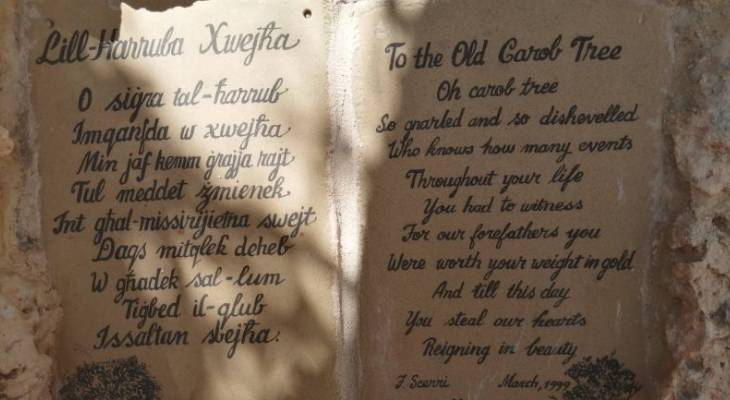 Lill-Ħarruba Xwejħa
O siġra tal-ħarrub
Imqanfda w xwejħa
Min jaf kemm ġrajja rajt
Tul meddet żmienek
Int għal-missirijietna swejt
Daqs mitqlek deheb
W għadek sal-lum
Tiġbed il-qlub
Issaltan sbejħa.
To the Old Carob Tree
Oh carob tree
So gnarled and so dishevelled
Who knows how many events
Throughout your life
You had to witness
For our forefathers you
Were worth your weight in gold
And till this day
You steal our hearts
Reigning in beauty
J. Scerri March, 1999